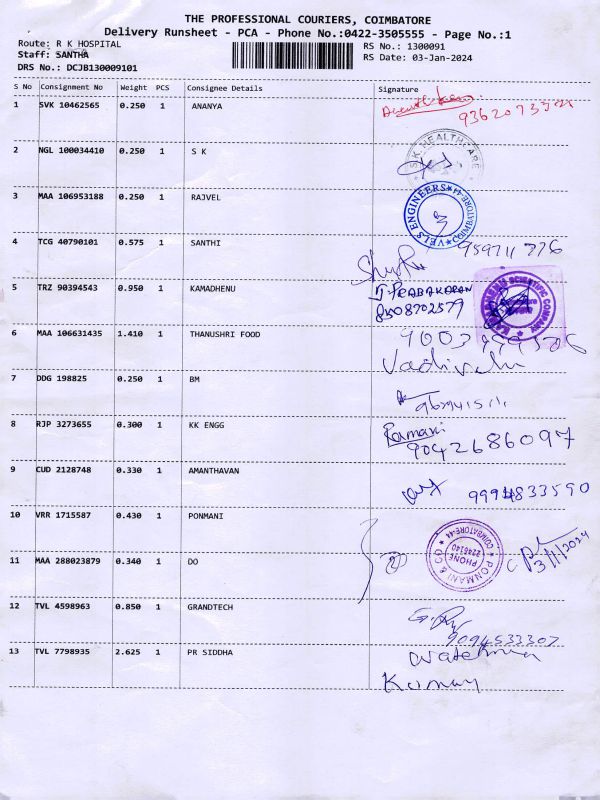 THE PROFESSIONAL COURIERS, COIMBATORE
Delivery Runsheet - PCA - Phone No.:0422-3505555 - Page No.:1
Route: R K HOSPITAL RS No.: 1300091
Staff: SANTHA RS Date: 03-Jan-2024
DRS No.: DCJB130009101
S No Consignment No Weight PCS Consignee Details Signature
1 SVK 10462565 0.250 1 ANANYA
2 NGL 100034410 0.250 1 S K
S.K. HEALTHCARE
3 MAA 106953188 0.250 1 RAJVEL
VELS ENGINEERS COIMBATORE-44
4 TCG 40790101 0.575 1 SANTHI
5 TRZ 90394543 0.950 1 KAMADHENU
J. PRABAKARAN
8508702579
KAMADHENU SCIENTIFIC COMPANY
6 MAA 106631435 1.410 1 THANUSHRI FOOD
Vadivelu
7 DDG 198825 0.250 1 BM
8 RJP 3273655 0.300 1 KK ENGG
Ramani
9042686097
9 CUD 2128748 0.330 1 AMANTHAVAN
9994833590
10 VRR 1715587 0.430 1 PONMANI
PONMANI & CO COIMBATORE-44
PHONE
2246140
3/1/2024
11 MAA 288023879 0.340 1 DO
12 TVL 4598963 0.850 1 GRANDTECH
9094533307
13 TVL 7798935 2.625 1 PR SIDDHA
Kumar